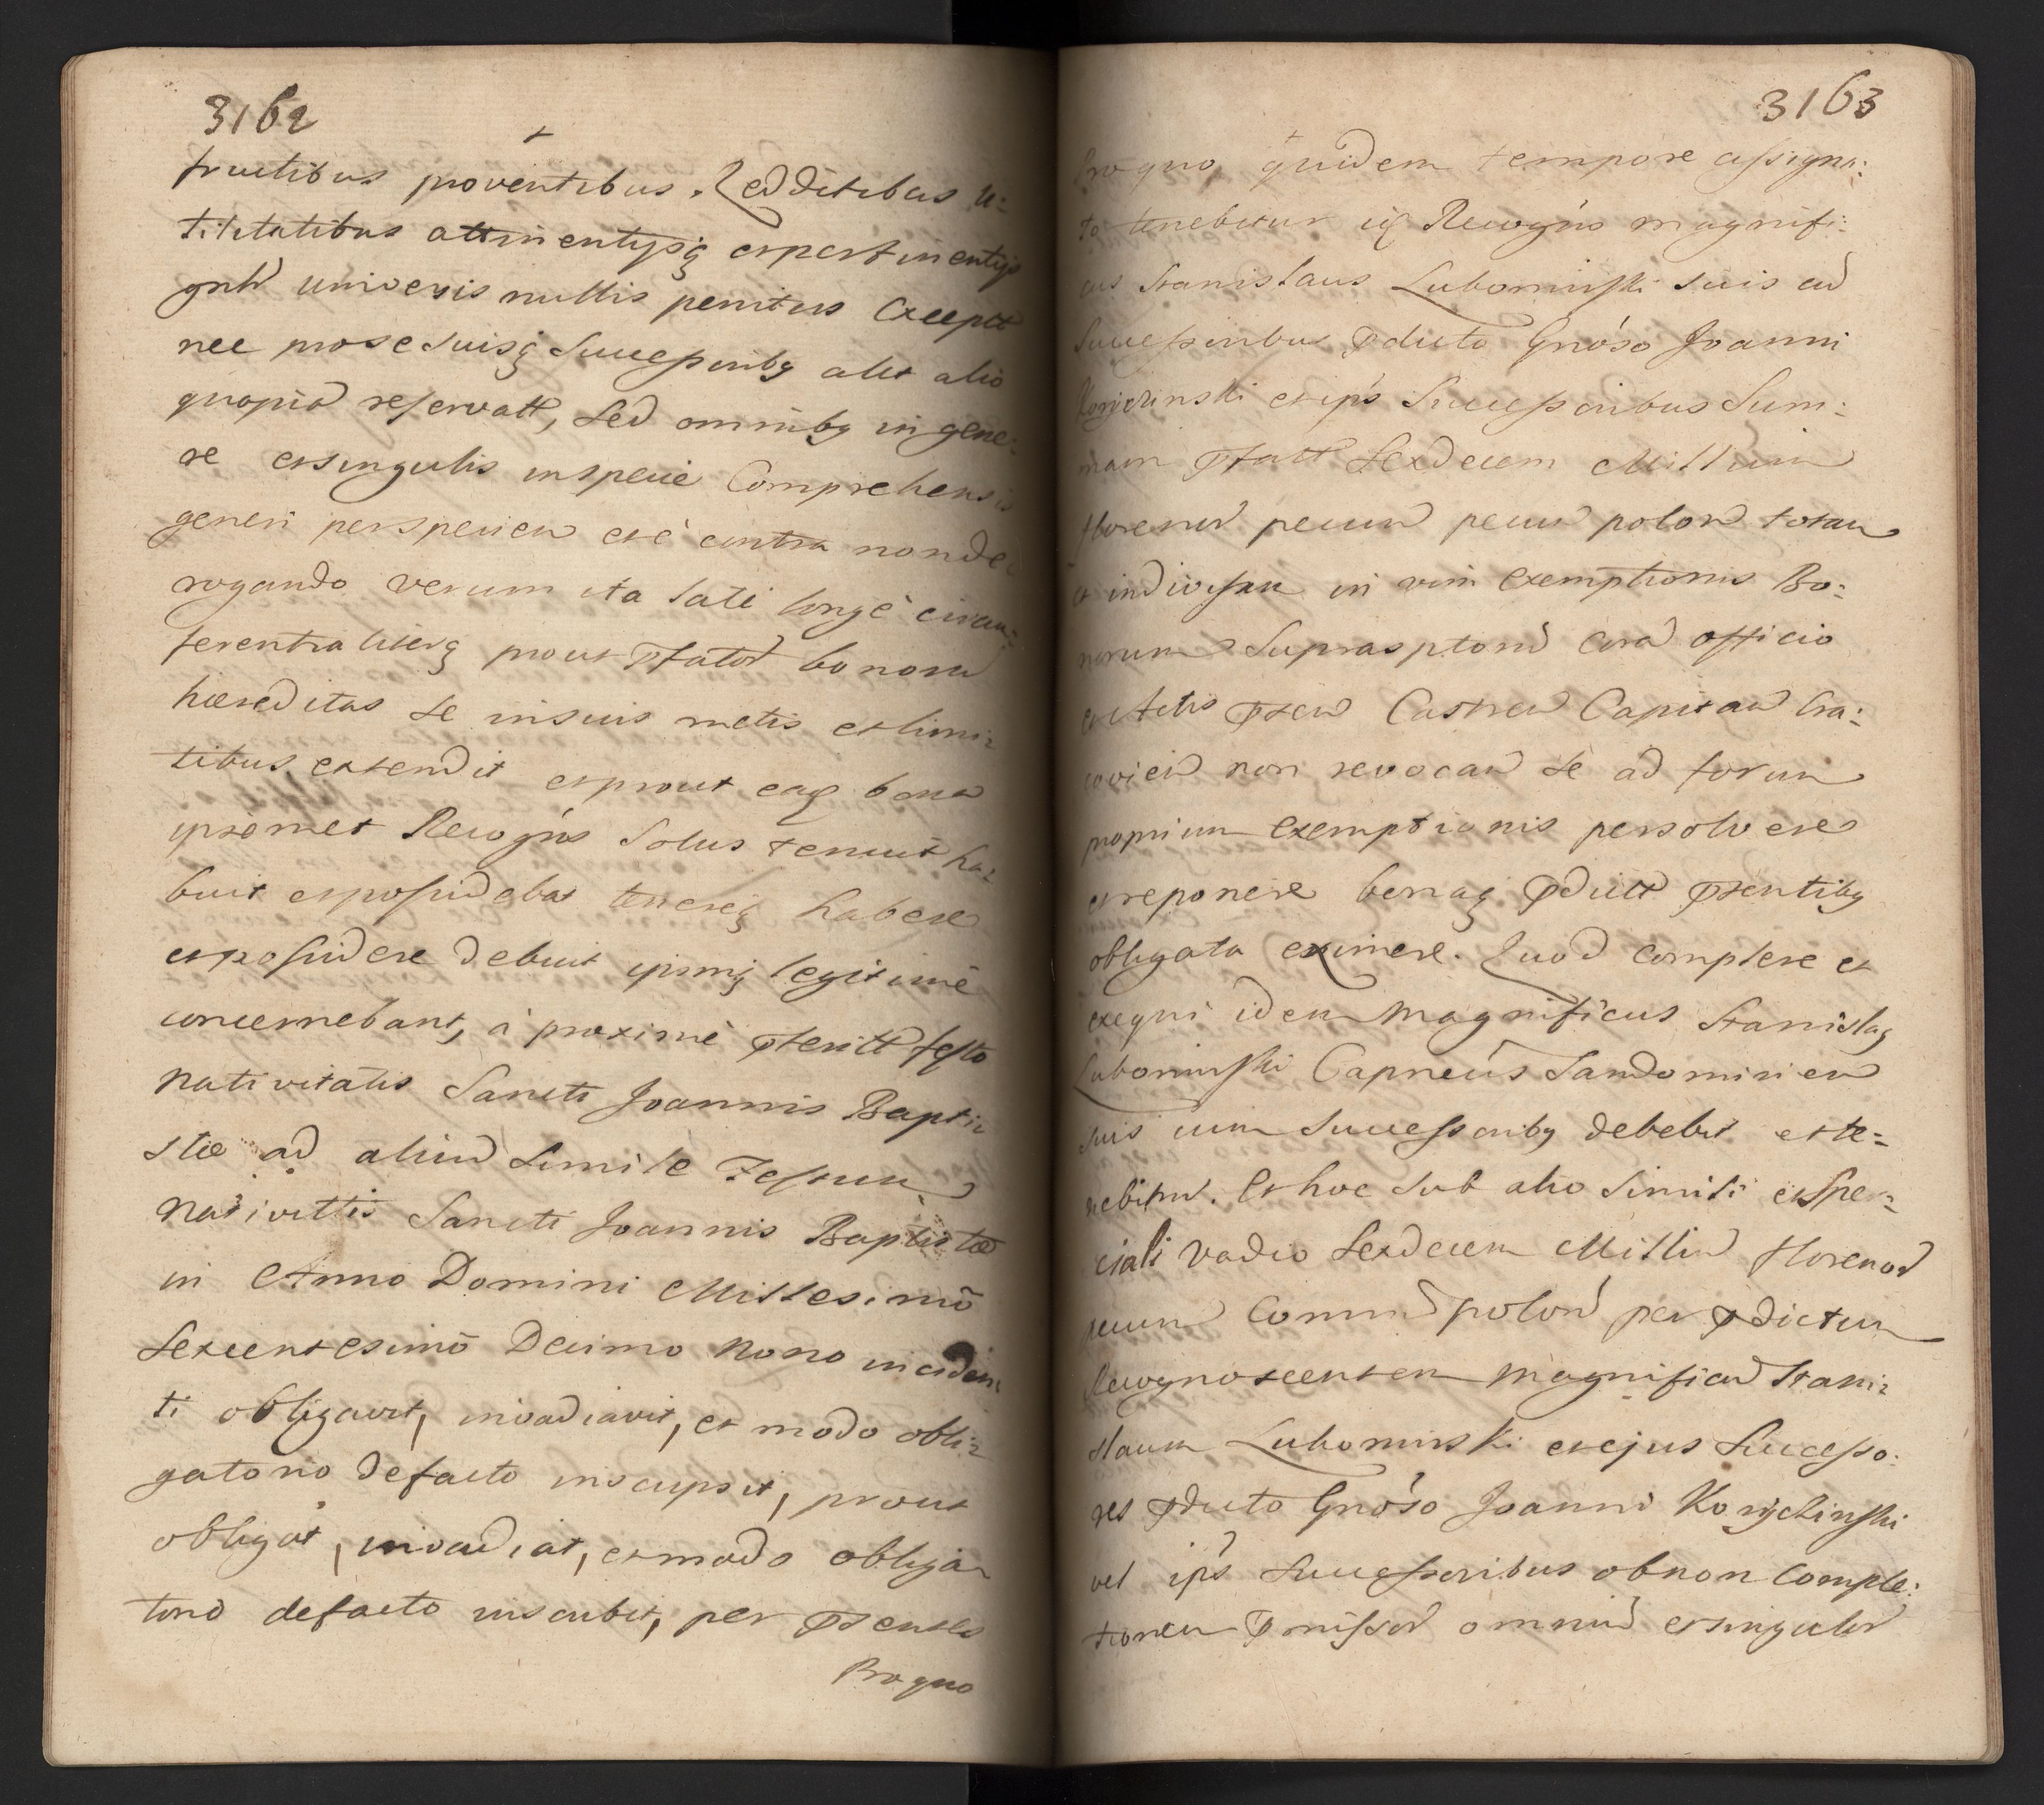 3162
fructibus proventibus, Redditibus u:
tilitatibus attinentijsq̃ etpertinentijs
gnl̃r universis nullis penitus Except
nec prose suisq̃ Successoribq̃ alit alio
quopiã reservatt, sed omnibq̃ in gene:
re etsingulis inspecie Comprehensis
generi perspeciem etè contra nonde
rogando verum ita latè longè circum:
ferentialiterq̃ prout p̃fator̃ bonorũ
hæreditas se insuis metis etlimi:
tibus extendit etprout eaq̃ bona
ipsemet Recogñs solus tenuit ha:
buit etpossidebat tenereq̃ habere
etpossidere debuit ipsumq̃ legitimè
concernebant, à proximè p̃teritt festo
nativitatis Sancti Joannis Bapti:
stæ ad aliud simile Festum
nativittis Sancti Joannis Baptistæ
in Anno Domini Millesimō
Sexcentesimō Decimo Nono inciden:
ti obligavit, invadiavit, et modo obli:
gatorio defacto inscripsit, prout
obligat, invadiat, etmodo obliga:
torio defacto inscribit, per p̃sentes
Proquo
3163
Proquo quidem tempore assigna:
to tenebitur idq̃ Recogñs magnifi:
cus Stanislaus Lubomirski suis cũ
Successoribus p̃dicto Gnóso Joanni
Korycinski etips̃ Successoribus Sum:
mam p̃fatt Sexdecem Millium
florenor̃ pecuñ pecuñ poloñ totam
et indivisam in vim exemptionis Bo:
norum Suprasptorũ corã officio
et Actis p̃señ Castreñ Capitañ Cra:
covieñ non revocañ se ad forum
proprium exemptionis persolvere
etreponere bonaq̃ p̃dictt p̃sentibq̃
obligata eximere. Quod complere et
exequi idem magnificus Stanislaq̃
Lubomirski Capneús Sandomirieñ
suis cum Successoribq̃ debebit et te:
nebitur. Et hoc sub alio simili etSpe:
ciali vadio Sexdecem Milliũ florenor̃
pecuñ Commũ poloñ per p̃dictum
Recognoscentem magnificũ Stani:
slaum Lubomirski etejus Successo:
res p̃dicto Gnóso Joanni Korychinski
vel ips̃ Successoribus obnon Comple:
tionem p̃missor̃ omniũ etsingulor̃